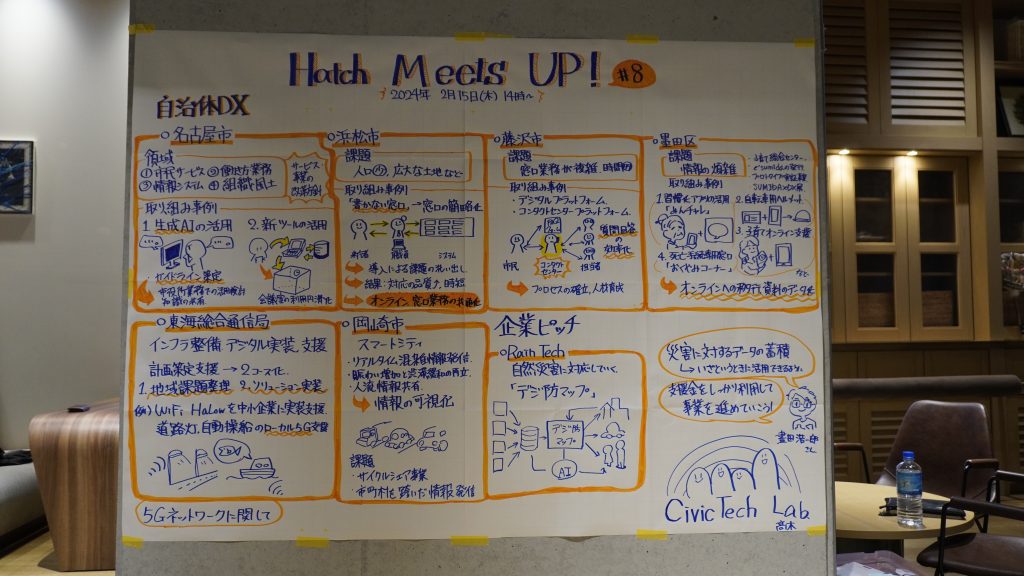 Hatch Meets UP! #8
2024年 2月15日(木) 14時~
自治体DX
名古屋市
領域
①市民サービス ②働き方業務
③情報システム ④組織風土
サービス
業務の
改革
取り組み事例
1. 生成AIの活用 2. 新ツールの活用
・ガイドライン策定
市役所業務での活用検討
知識の共有
会議室の利用円滑化
浜松市
課題
人口、広大な土地など
取り組み事例
「書かない窓口」→窓口の簡略化
市民 職員 システム
導入による課題の洗い出し
結果:対応の品質、時短
オンライン窓口業務の共通化
藤沢市
課題
窓口業務が複雑、時間的
取り組み事例
・デジタルプラットフォーム
・コンタクトセンタープラットフォーム
質問回答の
効率化
市民
担当者
プロセスの確立、人材育成
墨田区
課題
情報の煩雑
取り組み事例
子育て総合センター
プロトタイプ実証実験
SUMIDAのDX展
1. 習慣化アプリの活用
「みんチャレ」
2. 自転車用ヘルメット
3. 子育てオンライン支援
4. 死亡手続き専用窓口
「おくやみコーナー」
など
オンラインへの移行、資料のデータ化
東海総合通信局
インフラ整備 デジタル実装 支援
計画策定支援 → 2コース化
1. 地域課題整理 2. ソリューション実装
(例) WiFi HaLowを中小企業に実装支援
道路灯、自動操船のローカル5G支援
5Gネットワークに関して
岡崎市
スマートシティ
・リアルタイム混雑情報発信
・賑わい増加と渋滞緩和の両立
・人流情報共有
情報の可視化
課題
・サイクルシェア事業
・市町村を跨いだ情報発信
企業ピッチ
RainTech
自然災害に対応していく
「デジ防マップ」
デジ防
マップ
AI
災害に対するデータの蓄積
→いざというときに活用できるよう
支援金をしっかり利用して
事業を進めていこう!
さん
CivicTech Lab.
高木